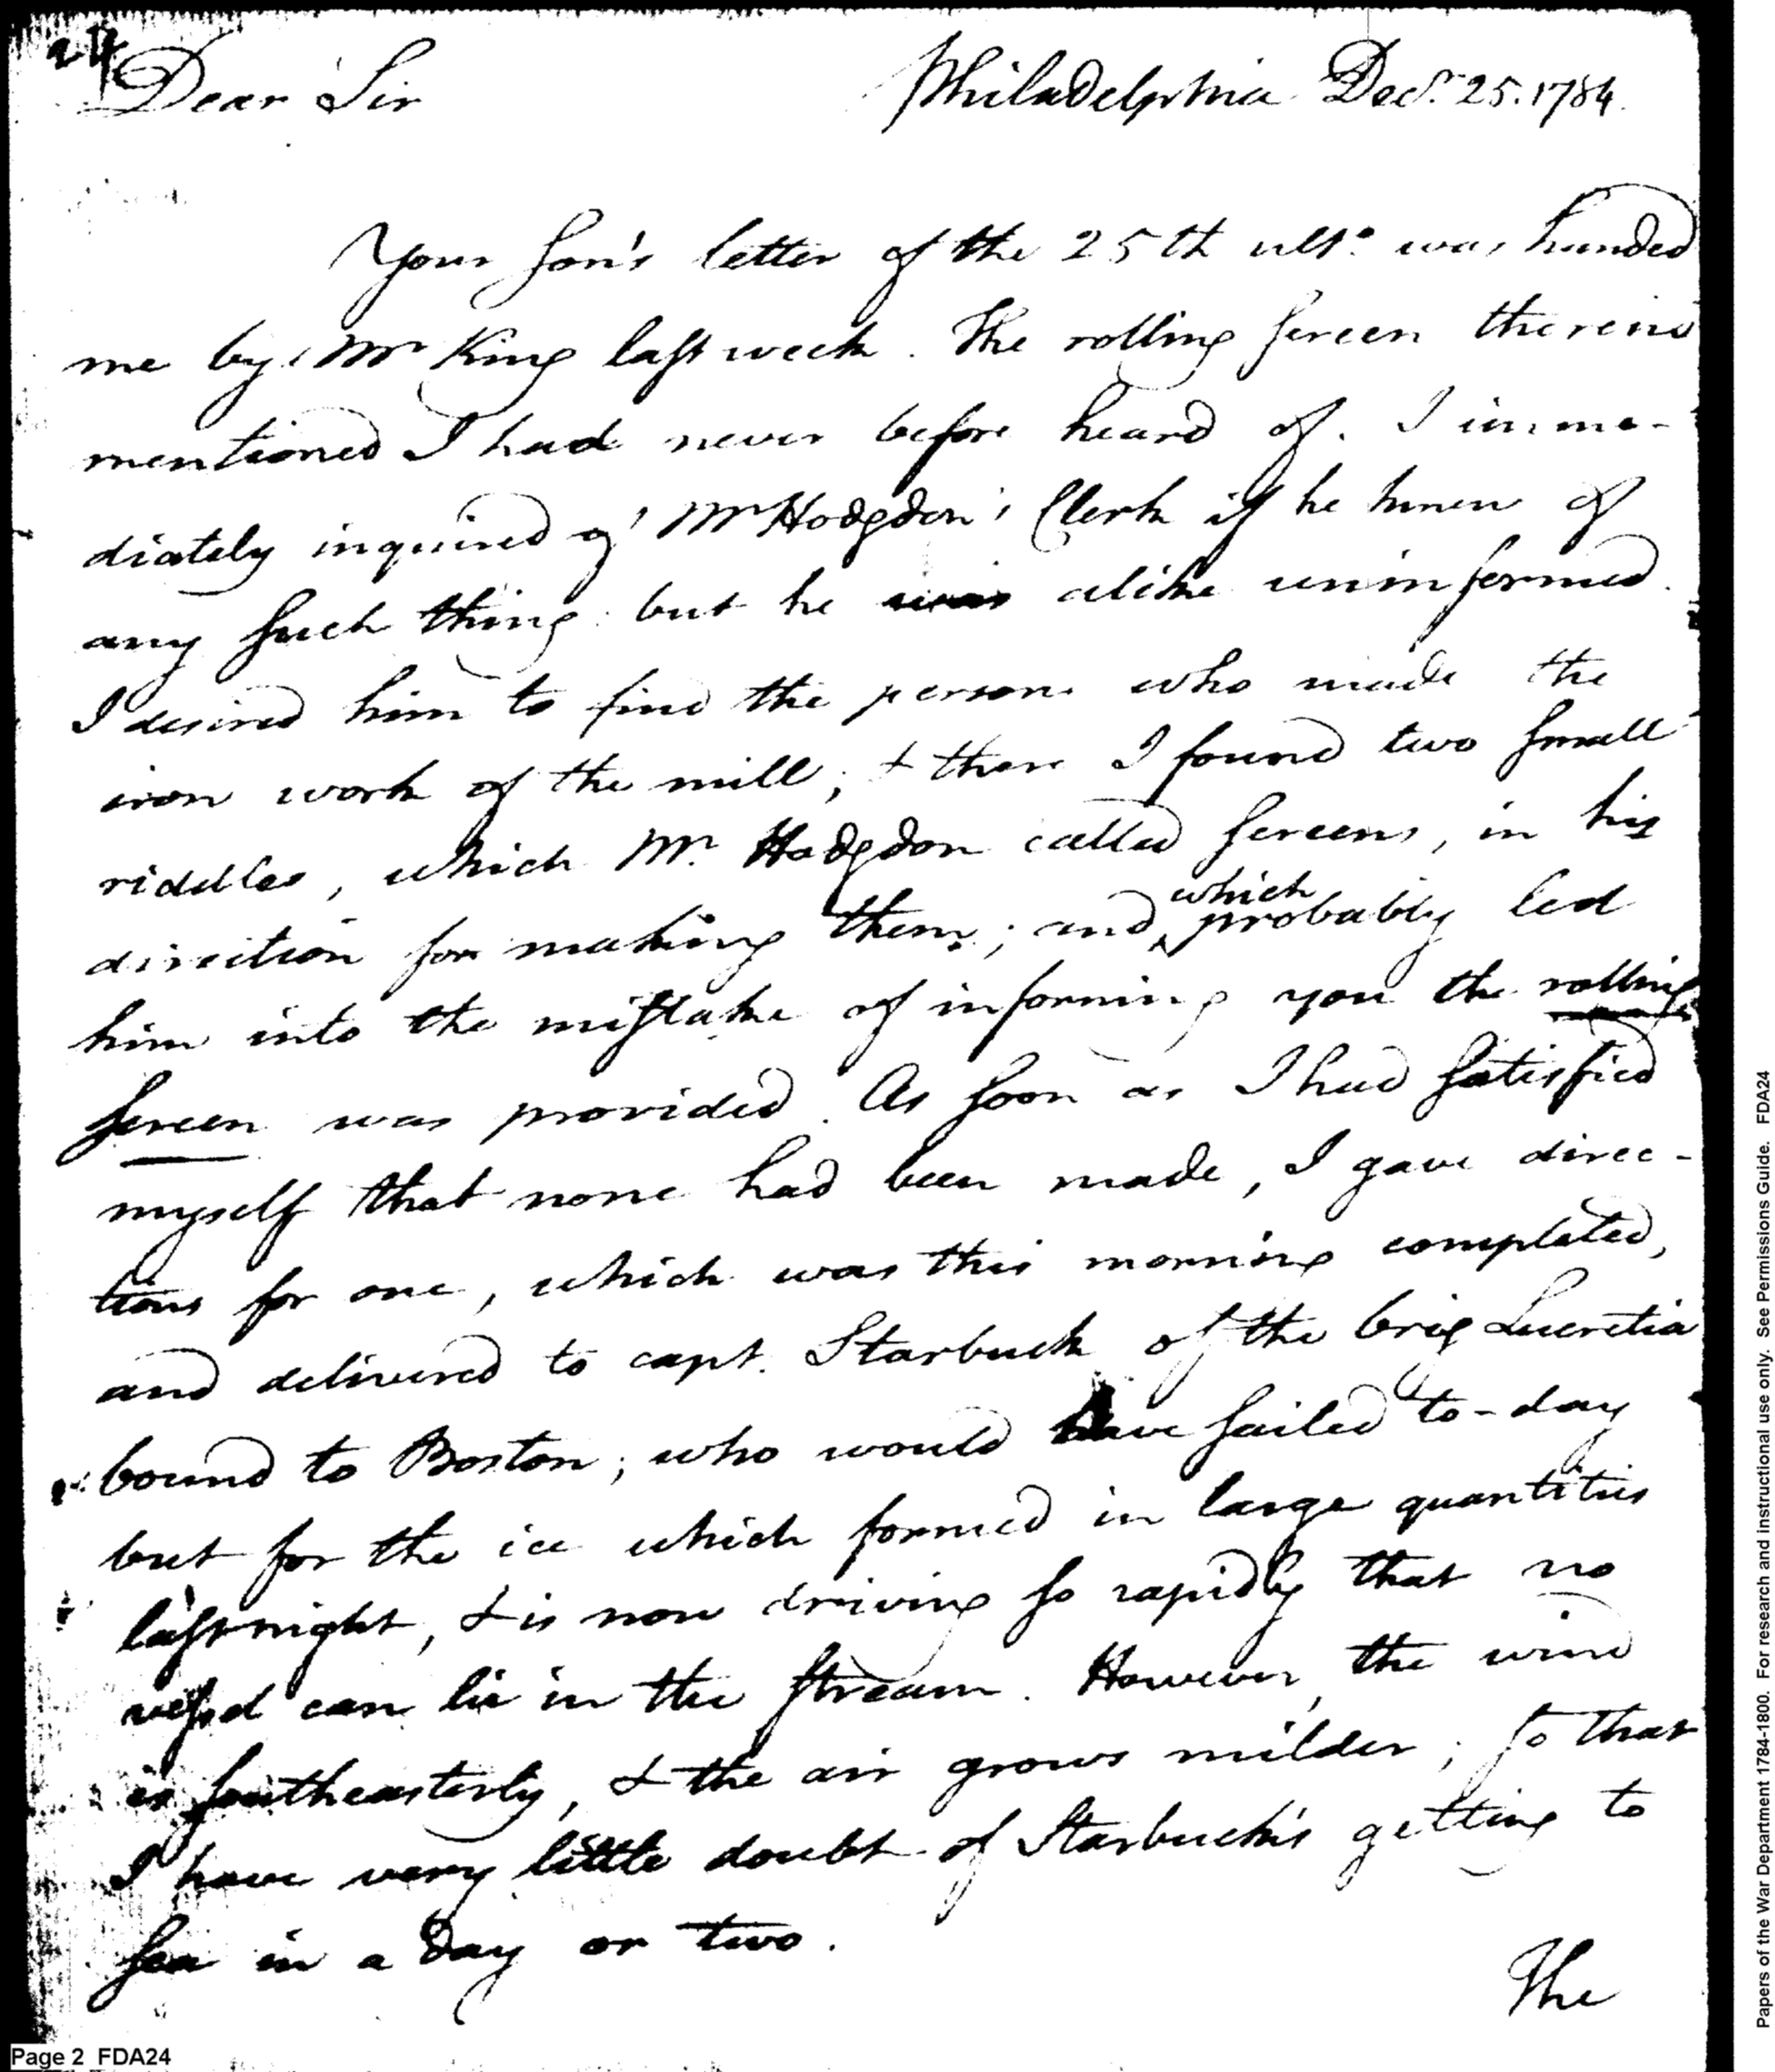 24
Dear Sir
Philadelphia Decr. 25. 1784.
Your son's letter of the 25th ulto. was handed
me by Mr King last week. The rolling screen therein
mentioned I had never before heard of. I imme-
diately inquired of Mr Hodgdon's Clerk if he knew of
any such thing: but he was alike uninformed.
I desired him to find the person who made the
iron work of the mill; & there I found two small
riddles, which Mr. Hodgdon called screens, in his
direction for making them; and which probably led
him into the mistake of informing you the rolling
screen was provided. As soon as I had satisfied
myself that none had been made, I gave direc-
tions for one, which was this morning completed,
and delivered to capt. Starbuck of the brig Lucretia
bound to Boston; who would have sailed to-day
but for the ice which formed in large quantities
last night, & is now driving so rapidly that no
vessel can lie in the stream. However, the wind
is southeasterly, & the air grows milder; so that
I have very little doubt of Starbuck's getting to
sea in a day or two.
The
Page 2 FDA24
Papers of the War Department 1784-1800. For research and instructional use only. See Permissions Guide. FDA24